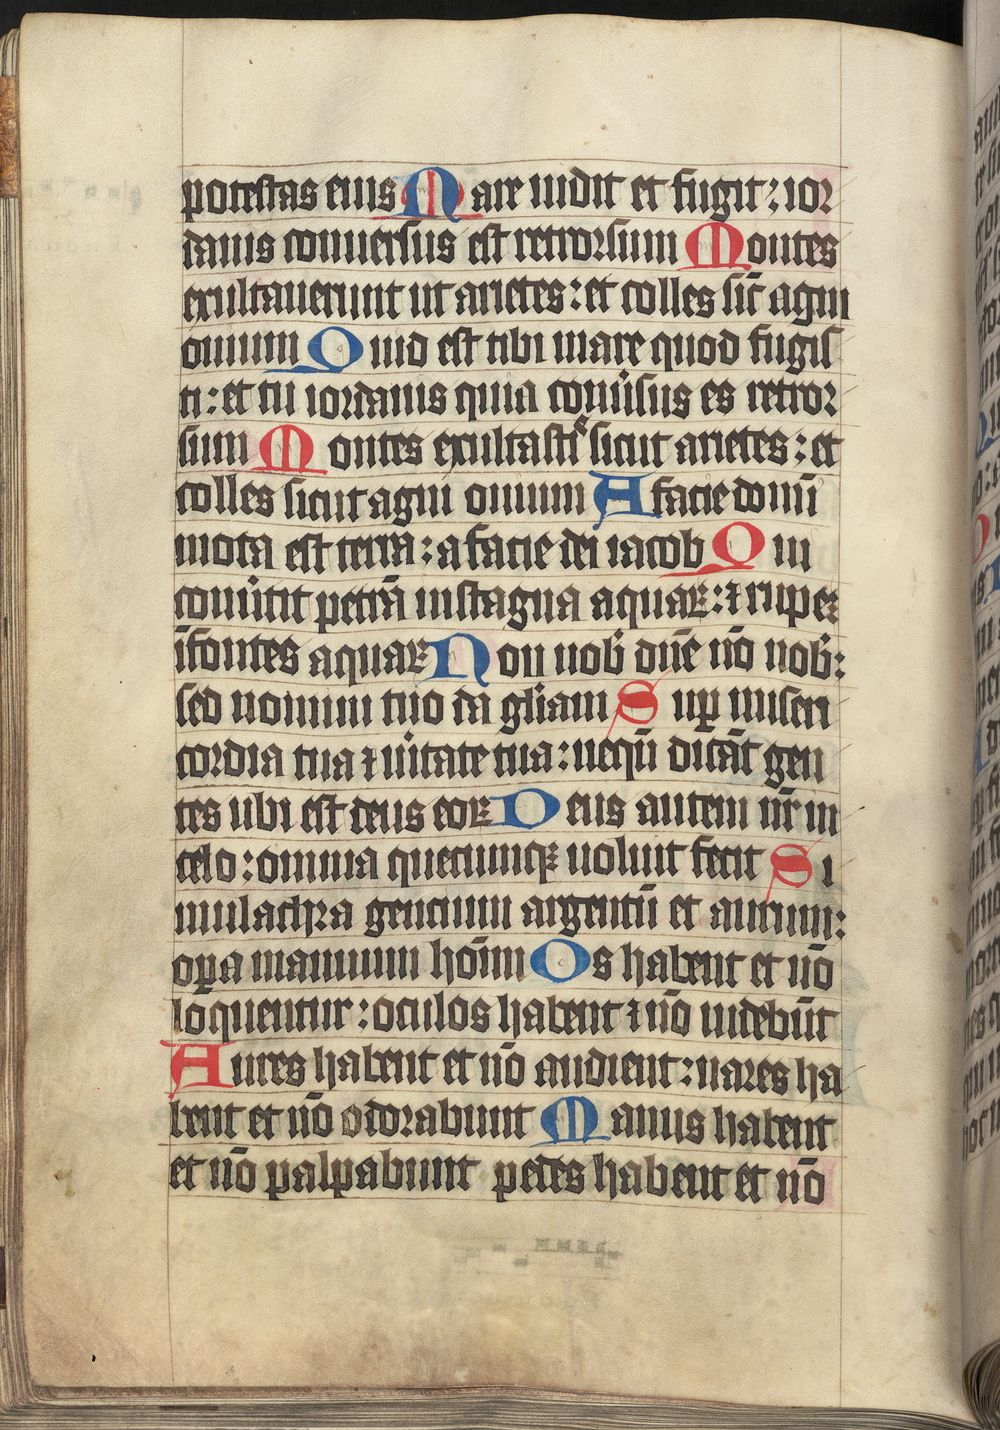 potestas eius Mare uidit et fugit: ior
danis conuersus est retrorsum Montes
exultauerunt ut arietes: et colles sic̄ agni
ouium Quid est tibi mare quod fugis
ti: et tu iordanis quia conūsus es retror
sum Montes exultastis sicut arietes: et
colles sicut agni ouium A facie domī
mota est terra: a facie dei iacob Qui
conūtit petrā in stagna aquaꝝ: ⁊ rupeꝫ
ī fontes aquaꝝ Non nob̄ dn̄e nō nob̄:
sed nomini tuo da gl̄iam Suꝑ miseri
cordia tua ⁊ ūitate tua: neqū dicāt gen
tes ubi est deus eoꝝ Deus autem nr̄ in
celo: omnia quecumqꝫ uoluit fecit Si
mulachra gencium argentū et aurum:
oꝑa manuum hoīm Os habent et nō
loquentur: oculos habent ⁊ nō uidebūt
Aures habent et nō audient: nares ha
bent et nō odorabunt Manus habent
et nō palpabunt pedes habent et nō